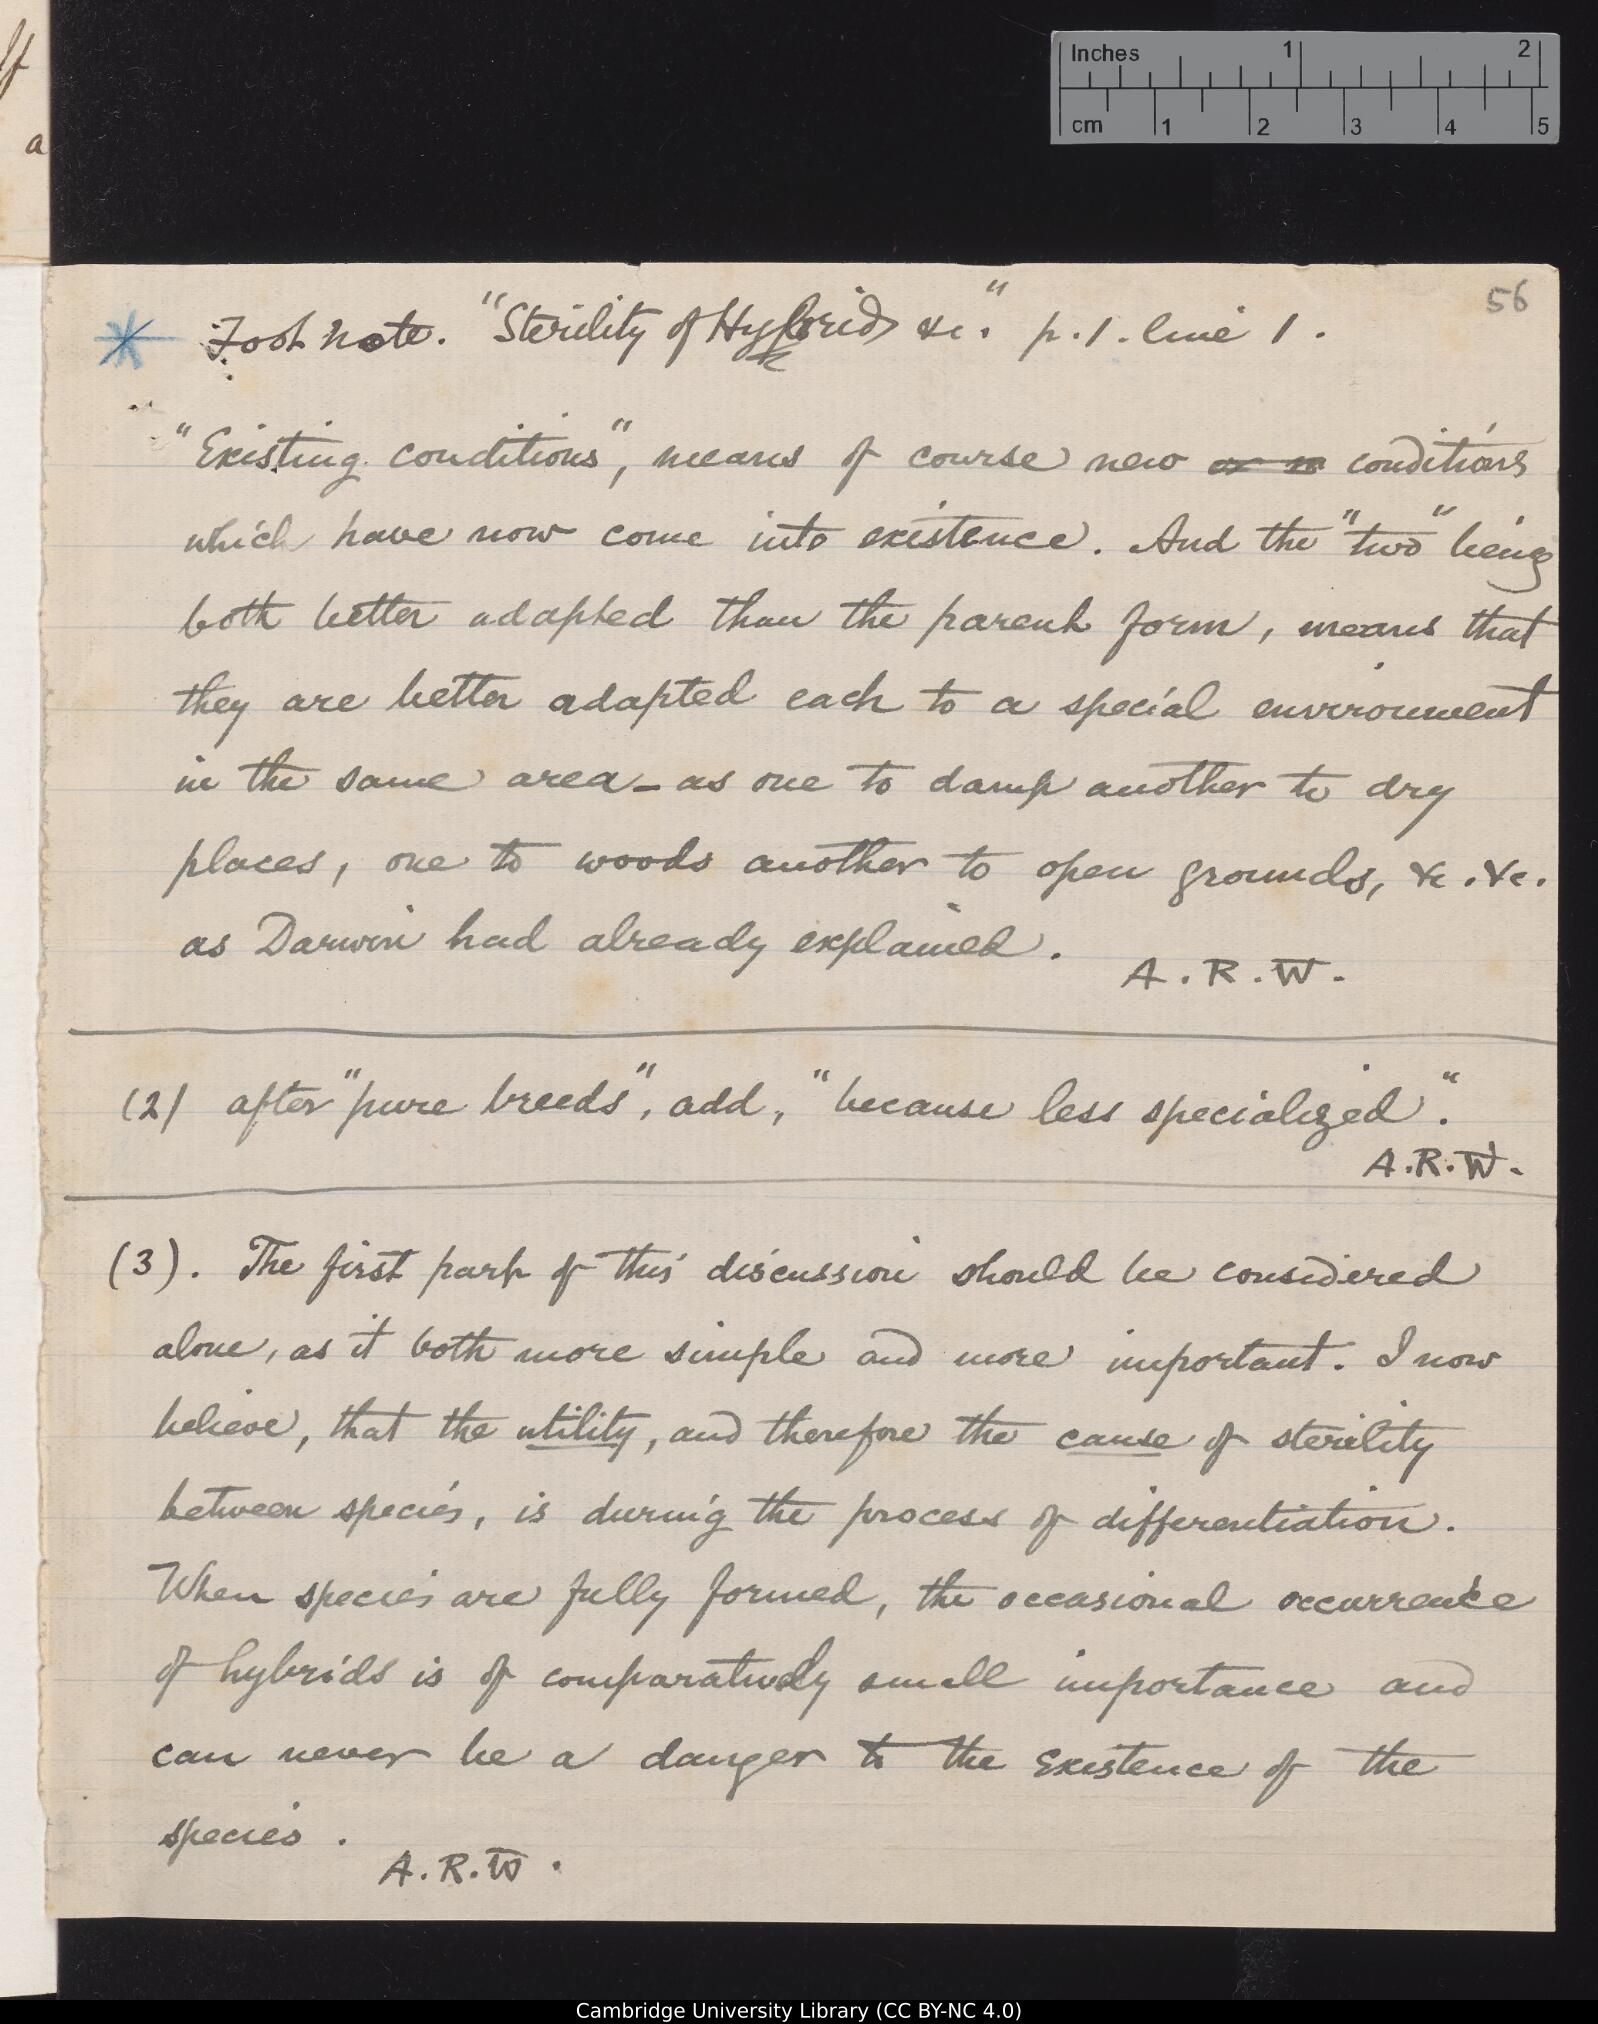 lf
a
Inches 1 2
cm 1 2 3 4 5
56
* Foot note. "Sterility of Hybrids &c." p.1. line 1.
"Existing conditions", means of course new conditions
which have now come into existence. And the "two" being
both better adapted than the parent form, means that
they are better adapted each to a special environment
in the same area - as one to damp another to dry
places, one to woods another to open grounds, &c. &c.
as Darwin had already explained.
A.R.W.
(2) after "pure breeds", add, "because less specialized".
A.R.W.
(3). The first part of this discussion should be considered
alone, as it both more simple and more important. I now
believe, that the utility, and therefore the cause of sterility
between species, is during the process of differentiation.
When species are fully formed, the occasional occurrence
of hybrids is of comparatively small importance and
can never be a danger to the existence of the
species.
A.R.W.
Cambridge University Library (CC BY-NC 4.0)